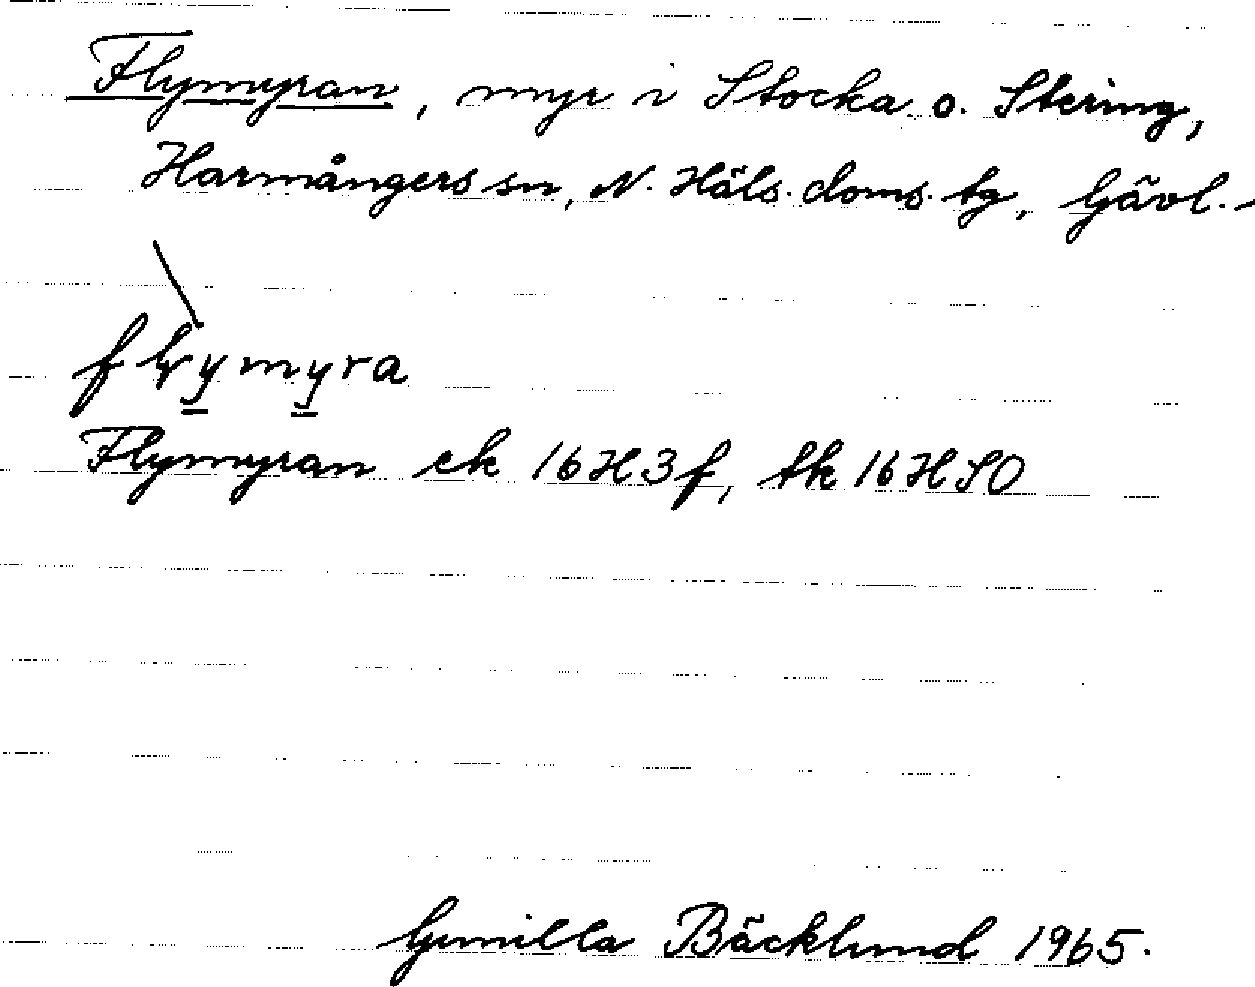 Flymyran, myr i Stocka o. Stering,
Harmångers sn, N. Häls. doms. tg, Gävl.
flymyra
Flymyran ek 16H3f, tk 16HSO
Gunilla Bäcklund 1965.